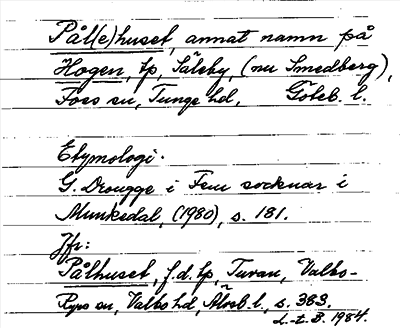 Pål(e)huset, annat namn på
Hogen, tp, Säleby, (nu Smedberg),
Foss sn, Tunge hd, Göteb. l.
Etymologi.
G. Drougge i Fem socknar i
Munkedal, (1980), s. 181.
Jfr:
Pålhuset, f.d. tp, Turan, Valbo-
Ryrs sn, Valbo hd, Älvsb. l., s. 383.
L-t. B. 1984.